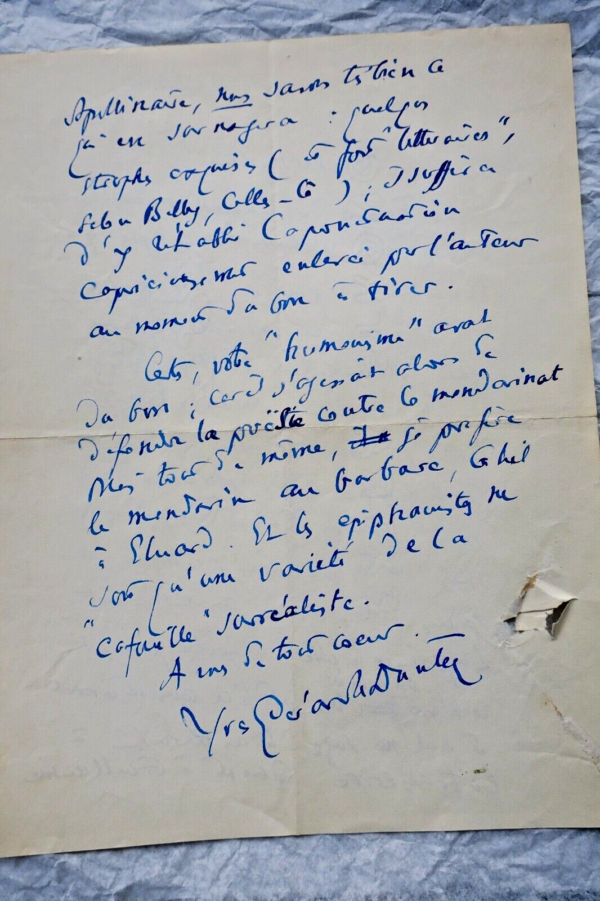 Apollinaire, nous savons très bien ce
qui en surnagera : quelques
strophes exquises (et fort "littéraires",
selon Billy, celles-là) ; il suffira
d'y rétablir la ponctuation
capricieusement enlevée par l'auteur
au moment du bon à tirer.
Certes, votre "humanisme" avait
du bon ; car il s'agissait alors de
défendre la poésie contre le mandarinat
Mais tout de même, je préfère
le mandarin au barbare, Ghil
à Eluard. Et les épiphanistes ne
sont qu'une variété de la
" " surréaliste.
A vous de tout coeur.
Yves Gérard Le Dantec